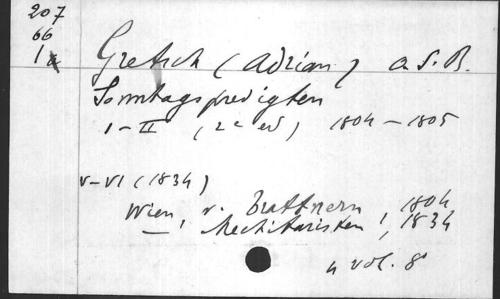 207
66
1a
Gretsch (Adrian) a. S. B.
Sonntagspredigten
I-II (2e ed) 1804-1805
V-VI (1834)
Wien, v. Trattnern, 1804
—, Mechitaristen, 1834
4 vol. 8°